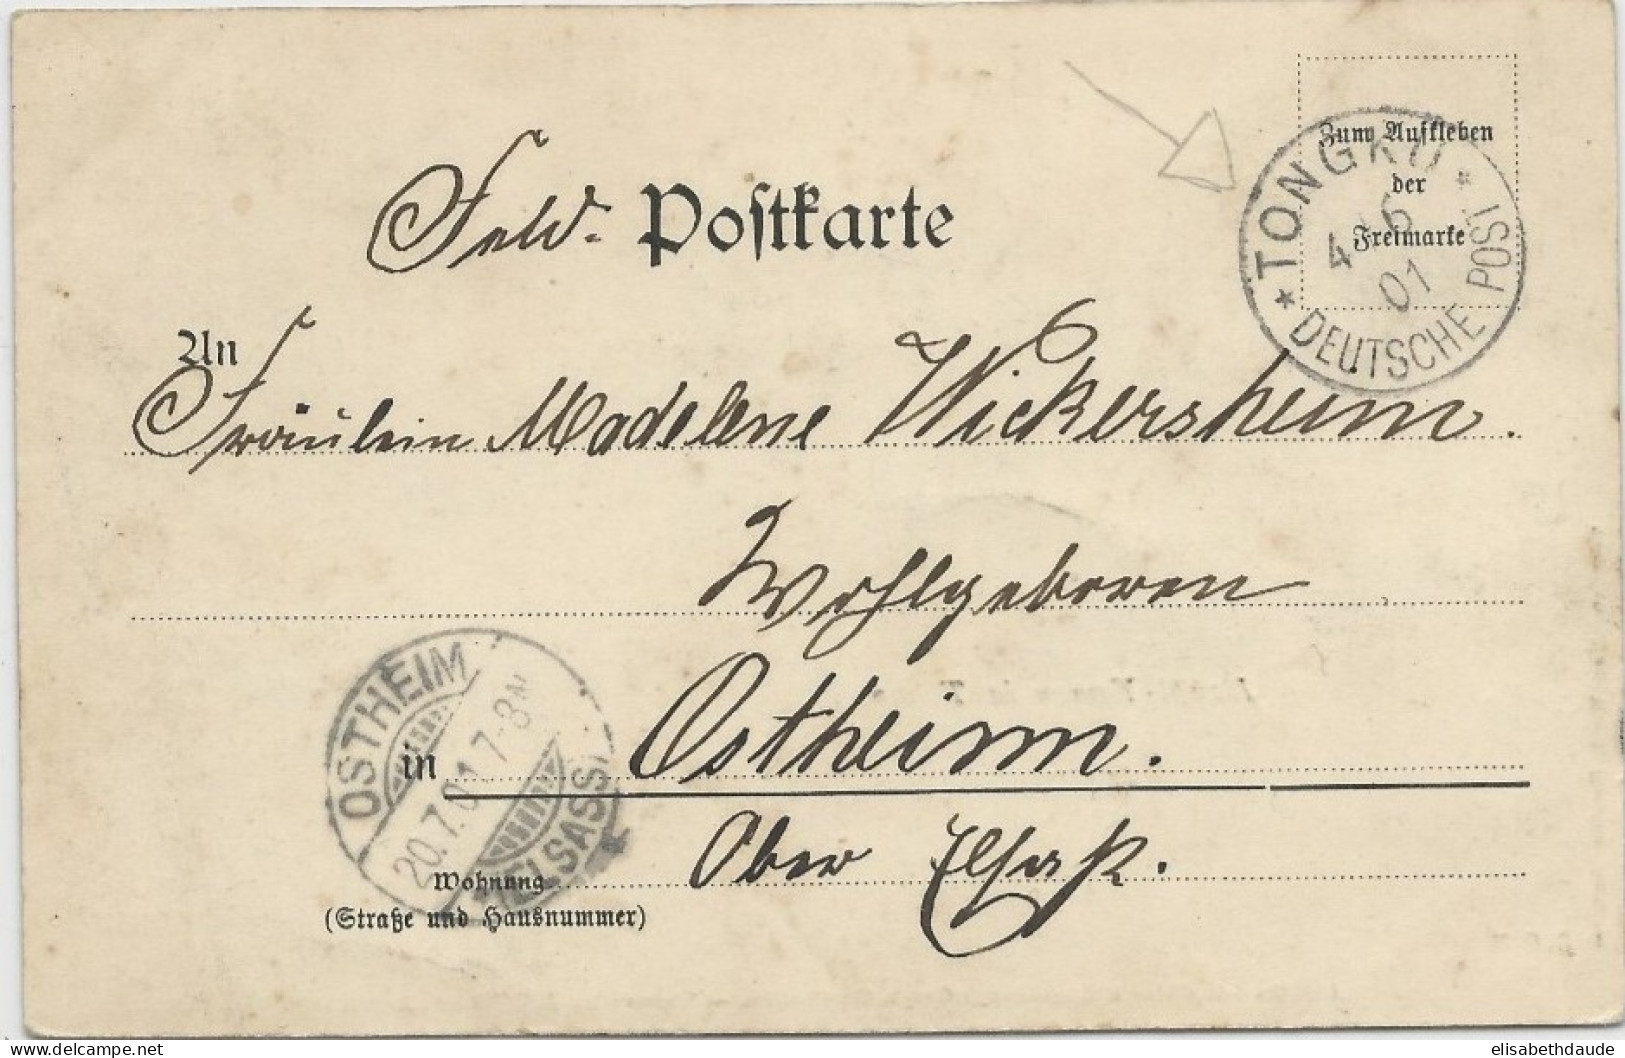 Zum Aufkleben
der
Freimarke
* TONGKU *
4 6
01
DEUTSCHE POST
Feld- Postkarte
An
Fräulein Madelene Wickersheim.
Wohlgeboren
OSTHEIM
20.7.01.7-8N
* ELSASS *
in Ostheim.
Wohnung Ober Elsaß.
(Straße und Hausnummer)
elisabethdaude